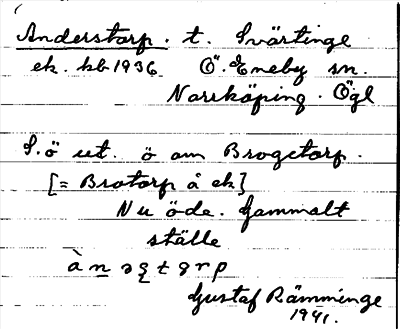 Anderstorp. t. Svärtinge
ek. kb 1936 Ö. Eneby sn.
Norrköping. Ögl
S.ö ut. ö om Brogetorp.
[= Brotorp å ek]
Nu öde. Gammalt
ställe
Gustaf Rämminge
1941.